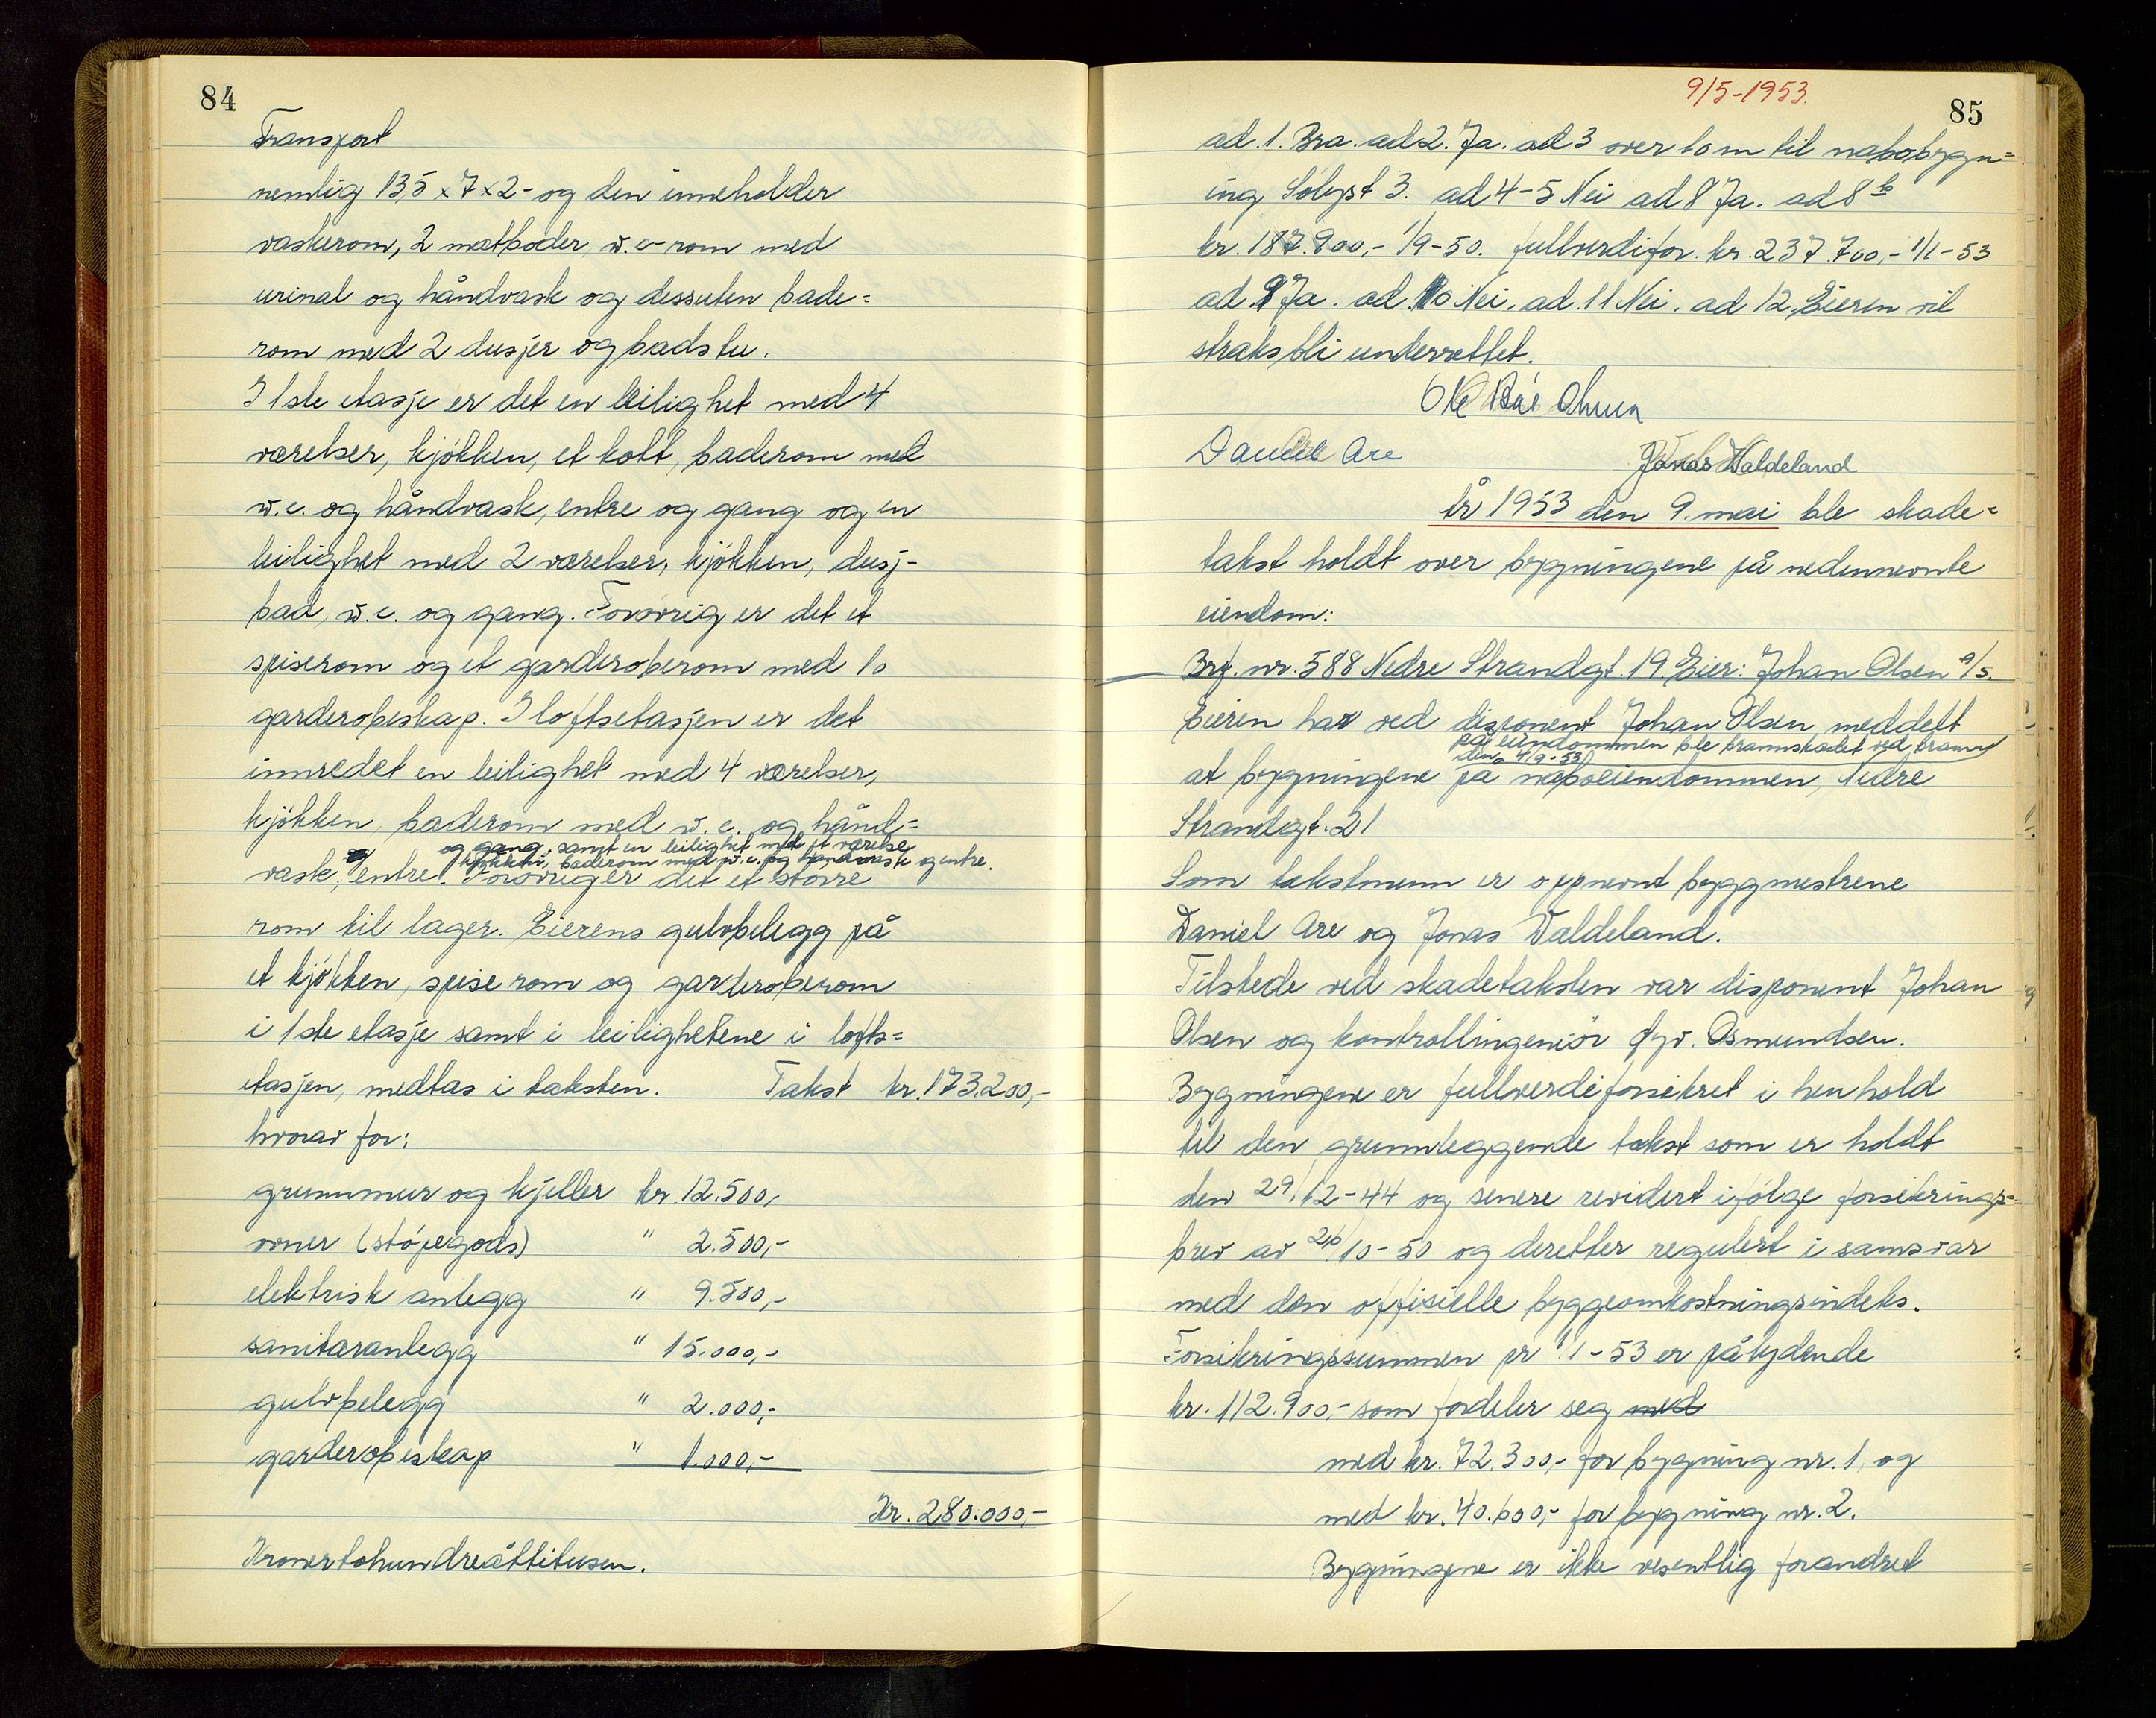 84
Transport
nemlig 13,5 x 7 x 2 - og den inneholder
vaskerom, 2 matboder, w.c-rom med
urinal og håndvask og dessuten bade=
rom med 2 dusjer og badstu.
I 1ste etasje er det en leilighet med 4
værelser, kjøkken, et kott, baderom med
w.c. og håndvask, entre og gang og en
leilighet med 2 værelser, kjøkken, dusj-
bad, w.c. og gang. Forøvrig er det et
spiserom og et garderoberom med 10
garderobeskap. I loftsetasjen er det
innredet en leilighet med 4 værelser,
kjøkken, baderom med w.c. og hånd=
og gang, samt en leilighet med et værelse
kjøkken, baderom med w.c. og håndvask og entre.
vask, entre. Forøvrig er det et større
rom til lager. Eierens gulvbelegg på
et kjøkken, spiserom og garderoberom
i 1ste etasje samt i leilighetene i lofts=
etasjen, medtas i taksten. Takst kr. 173.200,-
hvorav for:
grunnmur og kjeller kr. 12.500,-
ovner (støpegods) " 2.500,-
elektrisk anlegg " 9.500,-
sanitæranlegg " 15.000,-
gulvbelegg " 2.000,-
garderobeskap " 1.000,-
Kr. 280.000,-
Kronertohundreåttitusen.
9/5-1953.
85
ad. 1. Bra. ad 2. Ja. ad 3 over 10 m til nabobygn=
ing Sølvgt 3. ad 4-5 Nei ad 8 Ja. ad 8 b
kr. 187.900,- 1/9-50. fullverdifor. kr. 237.700,- 1/1-53
ad. 9 Ja. ad. 10 Nei. ad. 11 Nei. ad 12. Eieren vil
straks bli underrettet.
Ole
Daniel Are Jonas Valdeland
År 1953 den 9. mai ble skade=
takst holdt over bygningene på nedennevnte
eiendom:
Brf. nr. 588 Nedre Strandgt. 19. Eier: Johan Olsen A/S.
Eieren har ved disponent Johan Olsen meddelt
på eiendommen ble brannskadet ved brann
den 4/9-53
at bygningene på naboeiendommen, Nedre
Strandgt. 21
Som takstmenn er oppnevnt byggmestrene
Daniel Are og Jonas Valdeland.
Tilstede ved skadetaksten var disponent Johan
Olsen og kontrollingeniør Osmundsen.
Bygningene er fullverdiforsikret i henhold
til den grunnleggende takst som er holdt
den 29/12-44 og senere revidert ifølge forsikrings=
brev av 26/10-50 og deretter regulert i samsvar
med den offisielle byggeomkostningsindeks.
Forsikringssummen pr 1/1-53 er pålydende
kr. 112.900,- som fordeler seg med
med kr. 72.300,- for bygning nr. 1, og
med kr. 40.600,- for bygning nr. 2.
Bygningene er ikke vesentlig forandret